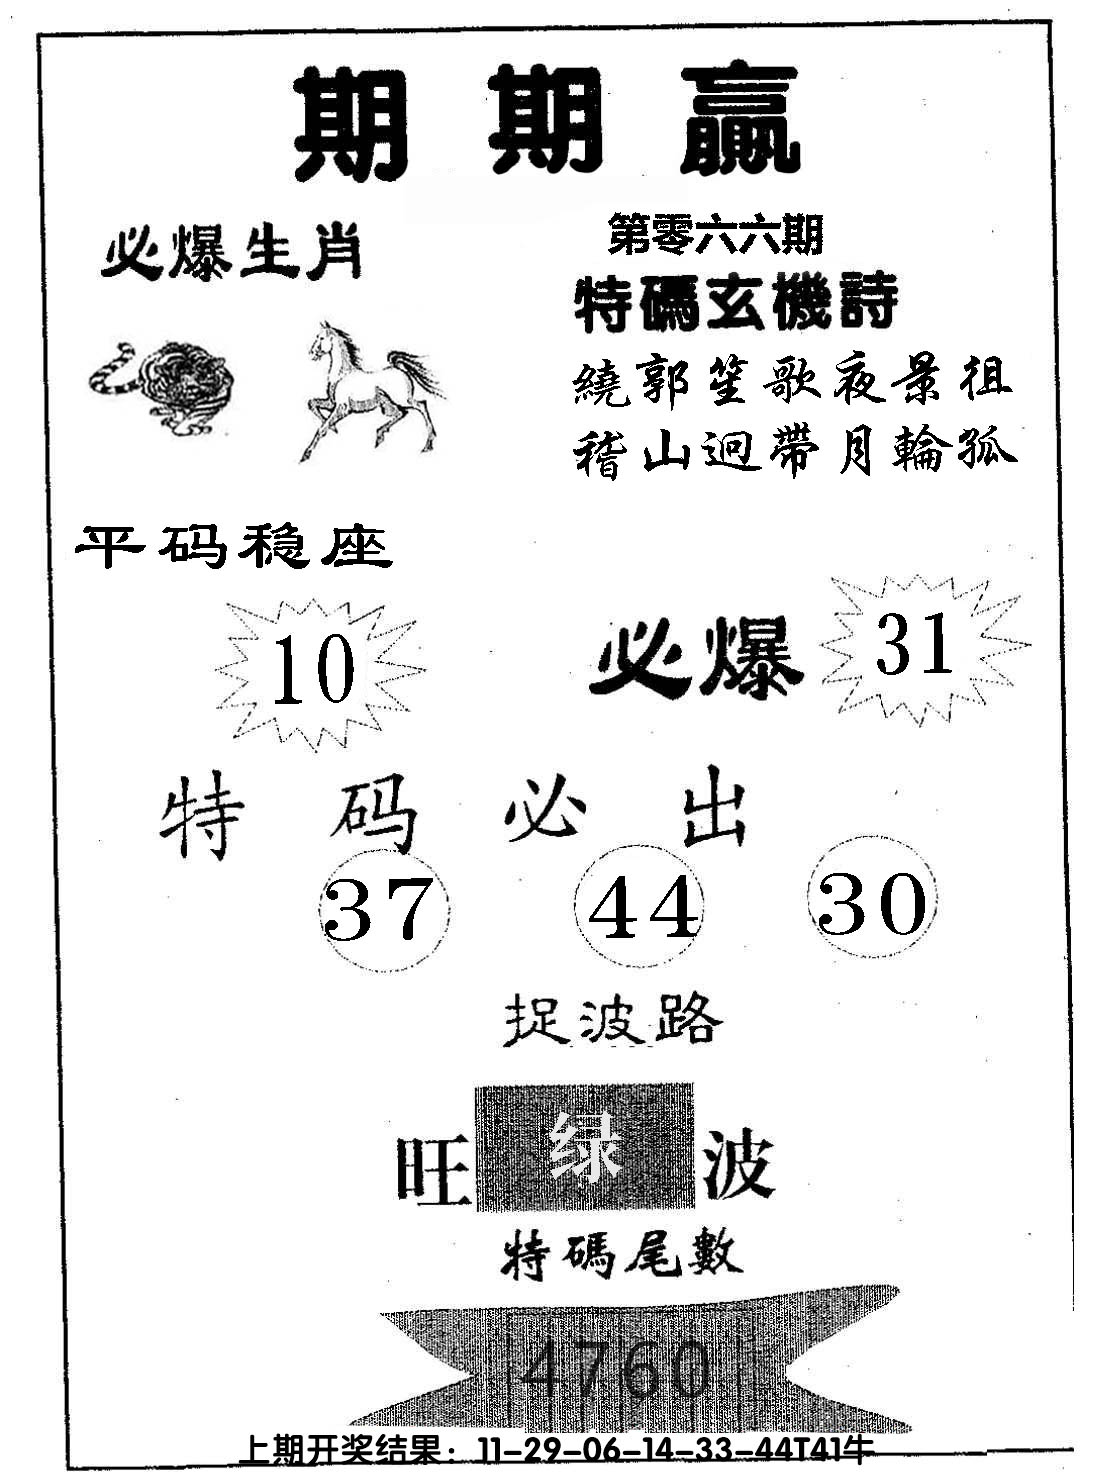 期期赢
必爆生肖
第零六六期
特碼玄機詩
繞郭笙歌夜景徂
稽山迥帶月輪孤
平码稳座
10
必爆 31
特码必出
37 44 30
捉波路
旺 绿 波
特碼尾數
4760
上期开奖结果：11-29-06-14-33-44T41牛